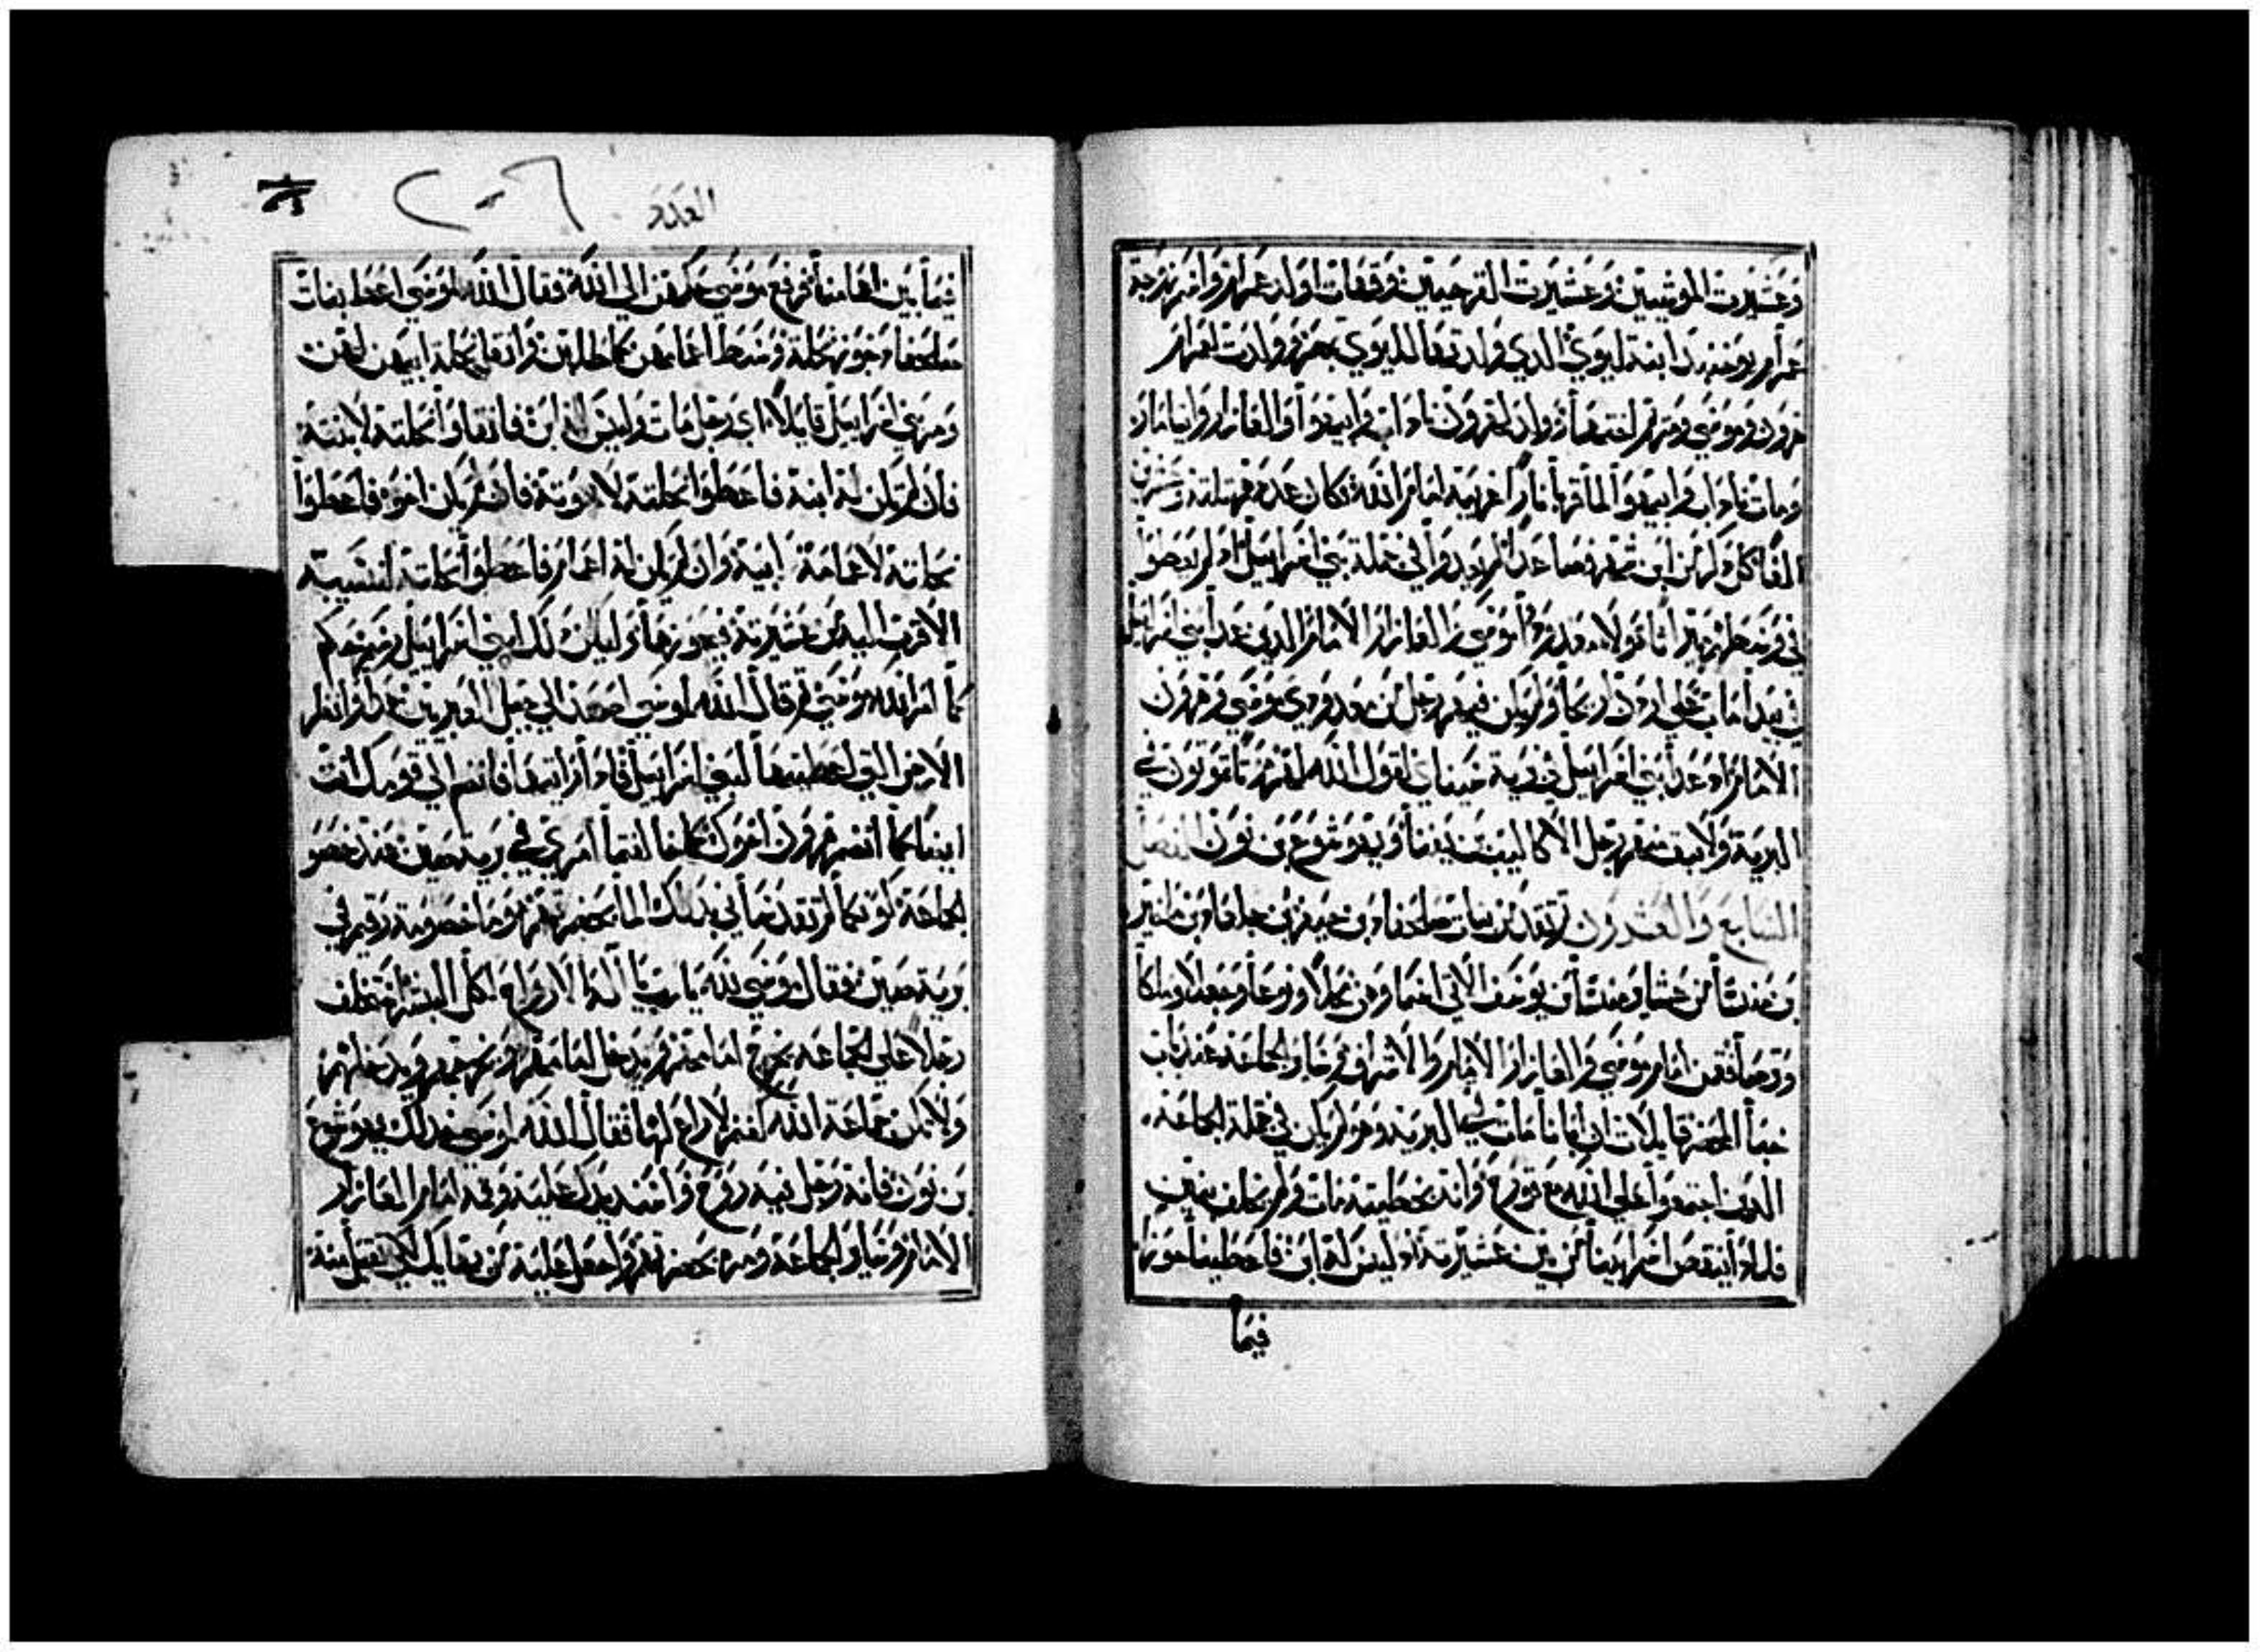 وعشيرت الموشيين وعشيرت القرحيين وقفات اولد عمرام واسم زوجة
عمرام يوخبد ابنة ليوي الذي ولدتها لليوي بمصر وولدت لعمرام
هرون وموسي ومريم اختهما وولد لهرون ناداب وابيهوا والعازار وايتامار
ومات ناداب وابيهوا لما قربا نارا غريبة امام الله فكان عددهم ثلثة وعشرين
الفا كل ذكر من ابن شهر فصاعدا لم يعدوا في جملة بني اسراييل اذ لم يعطوا
في وسطهم هولاء معدودوا موسي والعازار الامام الذين عدا بني اسراييل
في بيدا ماب علي اردن اريحا ولم يكن فيهم رجل من معدودي موسي وهرون
الامام اذ عدا بني اسراييل في برية سيناي لقول الله لهم موتا تموتون في
البرية ولا يبق منهم رجل الا كاليب بن يفنا ويهوشوع بن نون الفصل
السابع والعشرون تم تقدمن بنات صلحفاد بن حيفر بن جلعاد بن ماخير
بن منشا من عشاير منشا بن يوسف الاتي اسما وهن محلا ونوعا وحجلا وملكا
وترصا فقمن امام موسي والعازار الامام والاشراف وسايرالجماعة عند باب
خبا المحضر قايلات ان ابانا مات في البرية وهو لم يكن في جملة الجماعة
الذين اجتمعوا علي الله مع قورح وانه بخطيته مات ولم يخلف بنين
فلماذا ينقص اسم ابينا من بين عشيرته اذ ليس له ابن فاعطينا حوزا
فيما
العدد
٢٠٦
فيما بين اعمامنا فرفع موسي حكمهن الي الله فقال الله لموسي اعط بنات
صلحفاد حوز نحلة وسط اعمامهن كما طلبن وانقل نحلة ابيهن لهن
ومر بني اسراييل قايلا اي رجل مات وليس له ابن فانقلوا نحلته لابنته
فان لم يكن له ابنة فاعطوا نحلته لاخوته فان لم يكن اخوة فاعطوا
نحلته لاعمامة ابيه وان لم يكن له اعمام فاعطوا نحلته لنسيبه
الاقرب اليه من عشيرته فيحوزها وليكن ذلك لبني اسراييل رسم حكم
كما امر الله موسي ثم قال الله لموسي اصعد الي جبل العبريين هذا وانظر
الارض التي اعطيتها لبني اسراييل فاذا رايتها فانضم الي قومك انت
ايضا كما انضم هرون اخوك كلخالفتما امري في برية صين عند خصو
الجماعة كونكما لم تقدساني بذلك الما بحضرتهم هوما خصومة رقيم في
برية صين فقال موسي لله يا رب يا اله الارواح لكل البشر استخلف
رجلا علي الجماعة يخرج امامهم ويدخل امامهم ويخرجهم ويدخلهم
ولا تكن جماعة الله كغنم لا راع لها فقال الله لموسي خذ لك يهوشوع
بن نون فانه رجل فيه روح واسند يدك عليه وقفه امام العازار
الامام وساير الجماعة ومره بحضرتهم واجعل عليه من بهايك لكي تقبل منه